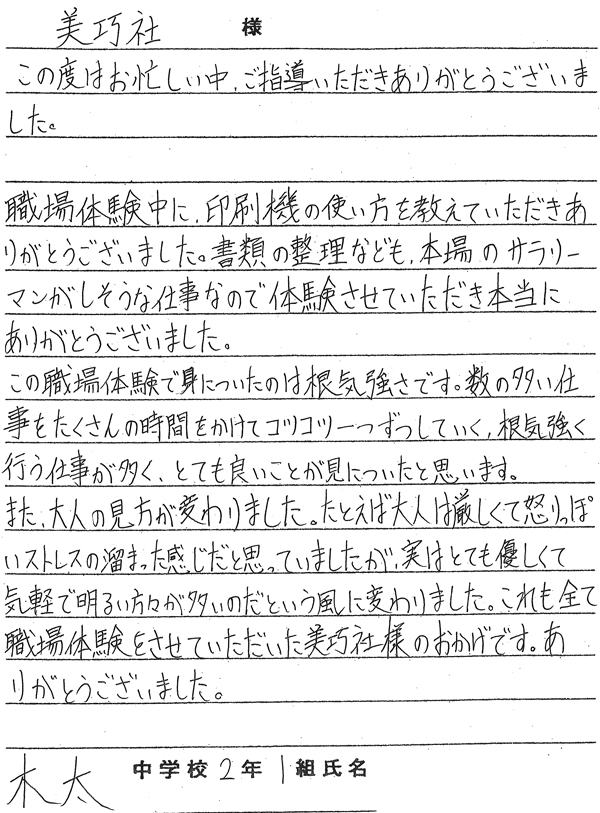 美巧社 様
この度はお忙しい中、ご指導いただきありがとうございま
した。
職場体験中に、印刷機の使い方を教えていただきあ
りがとうございました。書類の整理なども、本場のサラリー
マンがしそうな仕事なので体験させていただき本当に
ありがとうございました。
この職場体験で身についたのは根気強さです。数の多い仕
事をたくさんの時間をかけてコツコツ一つずつしていく、根気強く
行う仕事が多く、とても良いことが見についたと思います。
また、大人の見方が変わりました。たとえば大人は厳しくて怒りっぽ
いストレスの溜まった感じだと思っていましたが、実はとても優しくて
気軽で明るい方々が多いのだという風に変わりました。これも全て
職場体験をさせていただいた美巧社様のおかげです。あ
りがとうございました。
木太 中学校2年1組氏名